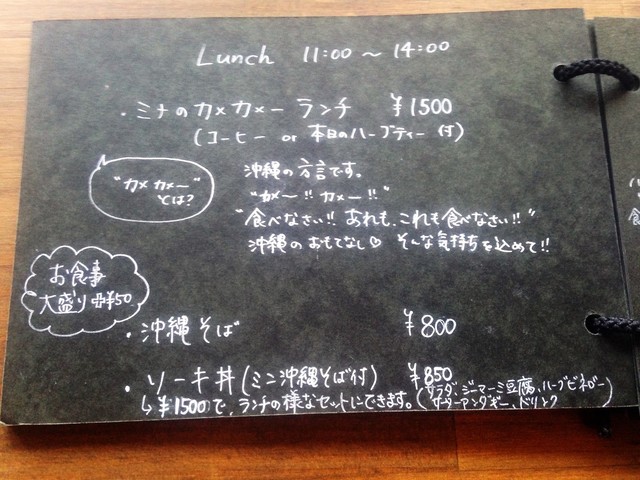 Lunch 11:00 ～ 14:00
・ミナのカメカメー ランチ ¥1500
(コーヒー or 本日のハーブティー 付)
"カメ カメ～"
とは?
沖縄の方言です。
"カメ～!! カメー!!"
"食べなさい!! あれも、これも食べなさい!!"
沖縄のおもてなし♡ そんな気持ちを込めて!!
お食事
大盛り ¥50
・沖縄そば ¥800
・ソーキ丼(ミニ沖縄そば付) ¥850
↳ ¥1500で、ランチの様なセットにできます。
(サラダ、ジーマーミ豆腐、ハーブビネガー
サーターアンダギー、ドリンク)
食